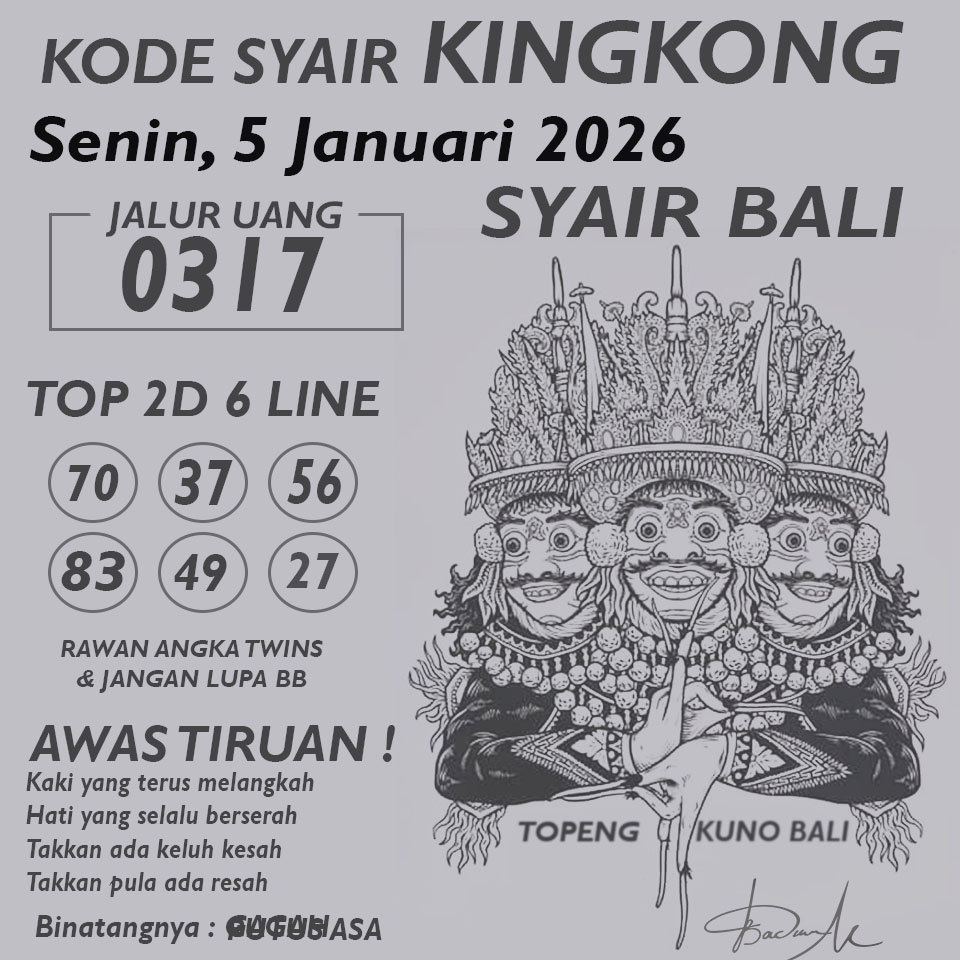 KODE SYAIR KINGKONG
Senin, 5 Januari 2026
SYAIR BALI
JALUR UANG
0317
TOP 2D 6 LINE
70 37 56
83 49 27
RAWAN ANGKA TWINS
& JANGAN LUPA BB
AWAS TIRUAN !
Kaki yang terus melangkah
Hati yang selalu berserah
Takkan ada keluh kesah
Takkan pula ada resah
Binatangnya : PUTUS ASA
TOPENG KUNO BALI